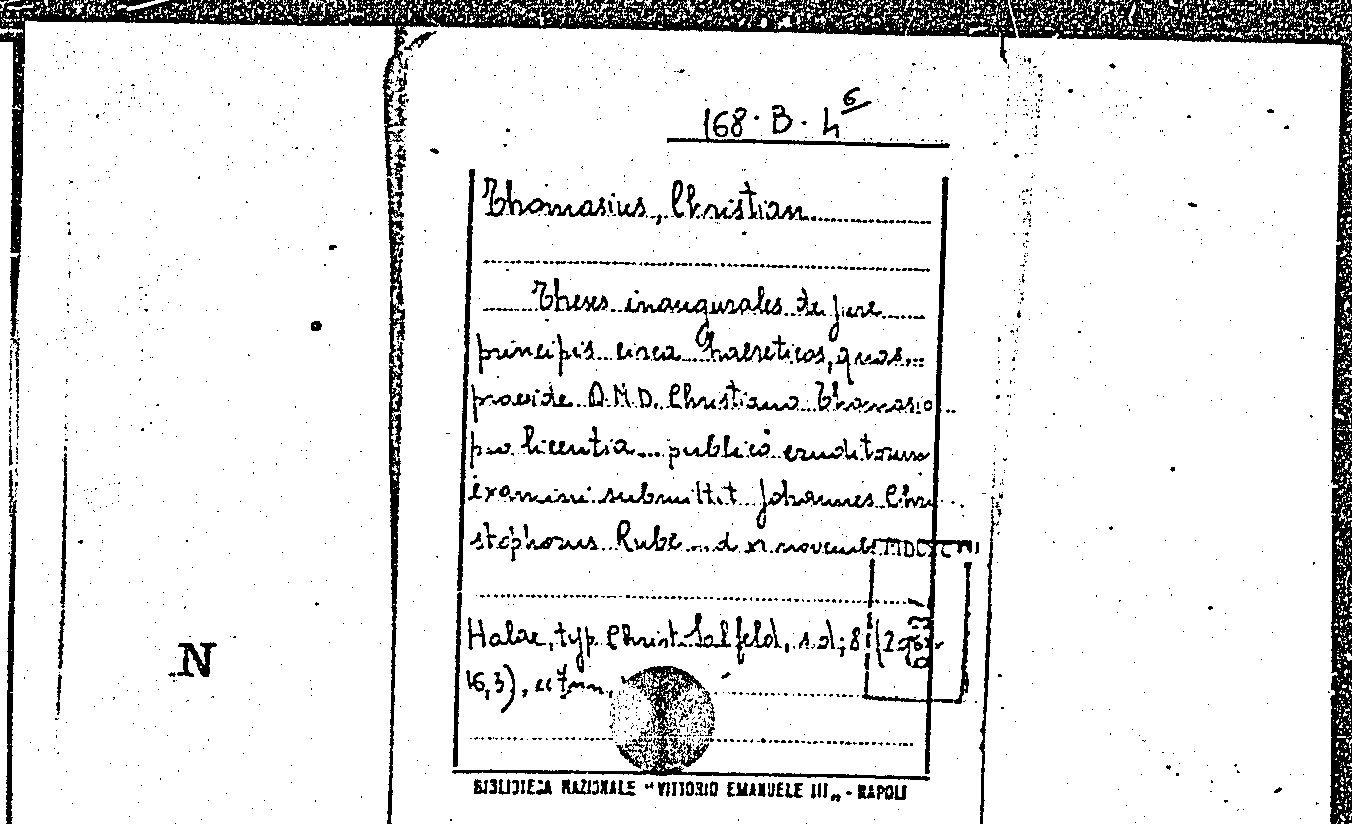 168 · B · 4 6
Thomasius, Christian
Theses inaugurales de jure
principis circa haereticos, quas...
praeside D.N.D. Christiano Thomasio
pro licentia ... publico eruditorum
examini submittit Johannes Chri
stophorus Rube ... d. XI novemb. MDCXCVII
Halae, typ. Christ. Salfeld, s.d; 8
16,3),
N
BIBLIOTECA NAZIONALE "VITTORIO EMANUELE III„ - NAPOLI